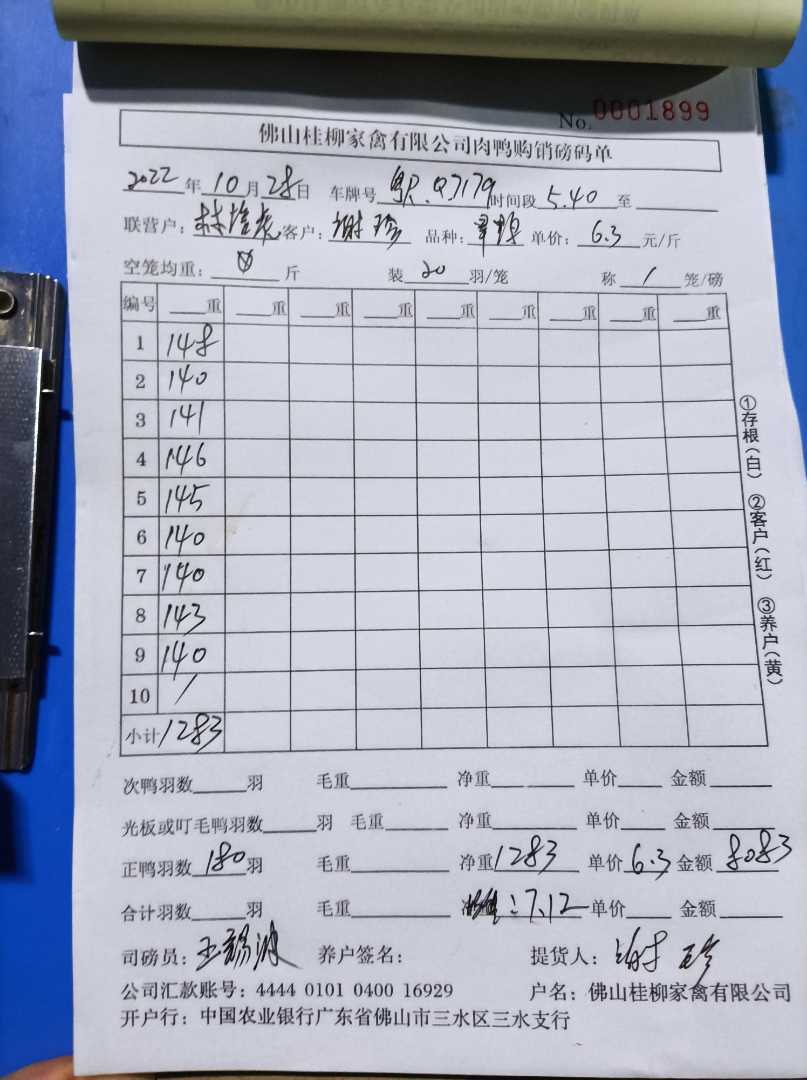 No. 0001899
佛山桂柳家禽有限公司肉鸭购销磅码单
2022年10月28日 车牌号 粤R.Q7179 时间段 5.40 至
联营户: 林培 客户: 谢珍 品种: 单价: 6.3 元/斤
空笼均重: 斤 装 20 羽/笼 称 1 笼/磅
编号 重 重 重 重 重 重 重 重 重
1 148
2 140
3 141
4 146
5 145
6 140
7 140
8 143
9 140
10 /
小计 1283
①存根(白) ②客户(红) ③养户(黄)
次鸭羽数 羽 毛重 净重 单价 金额
光板或叮毛鸭羽数 羽 毛重 净重 单价 金额
正鸭羽数 180 羽 毛重 净重 1283 单价 6.3 金额 8083
合计羽数 羽 毛重 : 7.12 单价 金额
司磅员: 王锡波 养户签名: 提货人: 谢珍
公司汇款账号: 4444 0101 0400 16929 户名: 佛山桂柳家禽有限公司
开户行: 中国农业银行广东省佛山市三水区三水支行